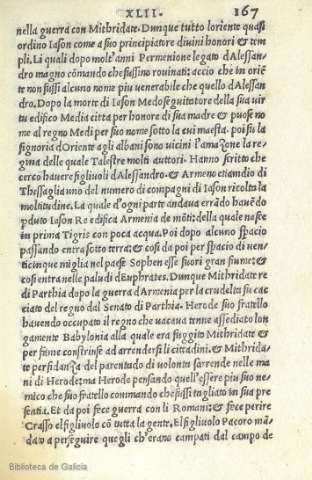 XLII. 167
nella guerra con Mithridate. Dunque tutto loriente quasi
ordino Iason come a suo principiatore divini honori & tem
pli. Li quali dopo molt'anni Permenione legato d'Alessan-
dro magno cõmando che fussino rouinati: accio che in oriẽ
te non fussi alcuno nome piu venerabile che quello d'Alessan
dro. Dopo la morte di Iason Medo seguitatore della sua vir
tu edifico Media citta per honore di sua madre & puose no
me al regno Medi per suo nome sotto la cui maestà. poi fu la
signoria d'Oriente agli albani sono vicini l'amazone la re-
gina delle quale Talestre molti auttori. Hanno scritto che
cerco hauere figliuoli d'Alessandro. & Armeno etiamdio di
Thessaglia uno del numero di compagni di Iason ricolta la
moltitudine. La quale d'ogni parte andaua errãdo hauẽdo
pduto Iason Re edifica Armenia de mõti: della quale nasce
in prima Tigris con poca acqua. Poi dopo alcuno spacio
passando entra sotto terra: & cosi da poi per spacio di uen-
ticinque miglia nel paese Sophen esse fuori gran fiume: &
cosi entra nelle paludi d'Euphrates. Dunque Mithridate re
di Parthia dopo la guerra d'Armenia per la crudelta fu cac
ciato del regno dal Senato di Parthia. Herode suo fratello
hauendo occupato il regno che uacaua tenne assediato lon
gamente Babylonia alla quale era fuggito Mithridate &
per fame constrinse ad arrendersi li cittadini. & Mithrida-
te per fidanza del parentado di uolonta sarrende nelle ma
ni di Herode: ma Herode pensando quell'essere piu suo ne-
mico che suo fratello commando che fussi tagliato in sua pre
sentia. Et da poi fece guerra con li Romani: & fece perire
Crasso el figliuolo cõ tutta la gente. El figliuolo Pacoro mã-
dato a perseguire quegli ch'erano campati dal campo de
Biblioteca de Galicia